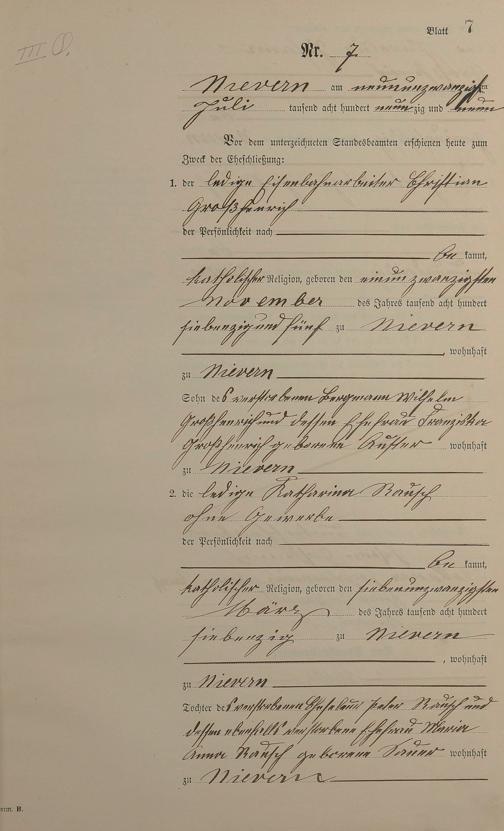 III
Blatt 7
Nr. 7.
Nievern am neunundzwanzigsten
Juli tausend acht hundert neunzig und neun
Vor dem unterzeichneten Standesbeamten erschienen heute zum
Zweck der Eheschließung:
1. der ledige Eisenbahnarbeiter Christian
Großhenrich
der Persönlichkeit nach
be kannt,
katholischer Religion, geboren den einundzwanzigsten
November des Jahres tausend acht hundert
siebenzig und fünf zu Nievern
, wohnhaft
zu Nievern
Sohn des verstorbenen Bergmann Wilhelm
Großhenrich und dessen Ehefrau Franziska
Großhenrich geborene wohnhaft
zu Nievern
2. die ledige Katharina Rausch
ohne Gewerbe
der Persönlichkeit nach
be kannt,
katholischer Religion, geboren den siebenundzwanzigsten
März des Jahres tausend acht hundert
siebenzig zu Nievern
, wohnhaft
zu Nievern
Tochter des verstorbenen Peter Rausch und
dessen ebenfalls verstorbene Ehefrau Maria
Anna Rausch geborene Sauer wohnhaft
zu Nievern
B.